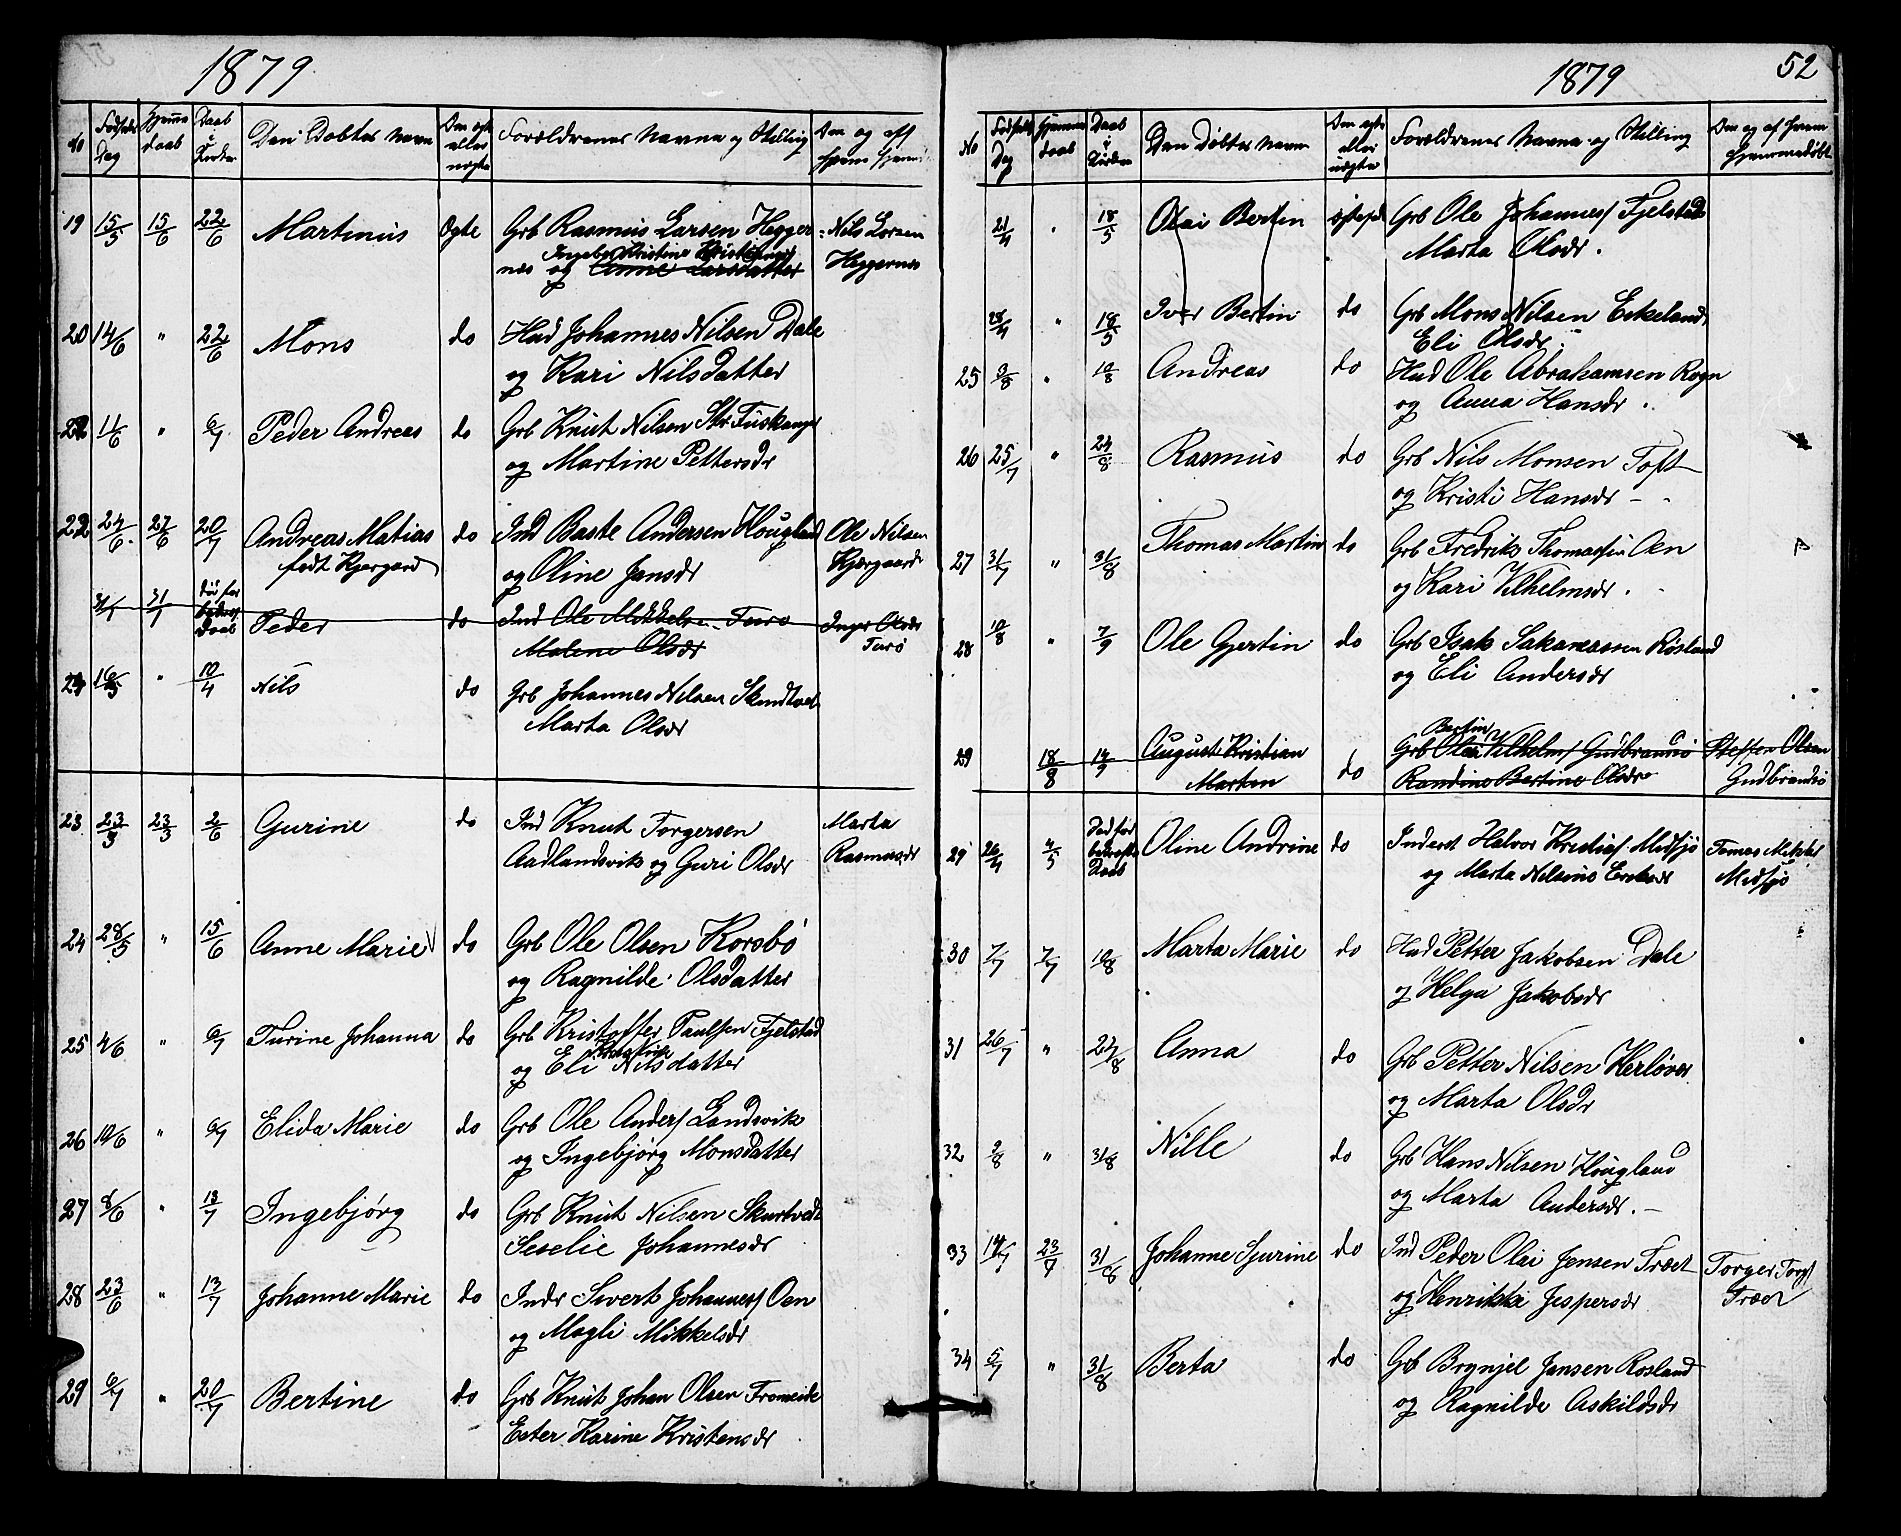 1879
No Fødsels Dag Hjemme daab Daab i Kirken Den Døbtes Navn Om ægte eller uægte Forældrenes Navne og Stilling Om og af hvem hjem
19 15/5 15/6 22/6 Martinus Ægte Grb Rasmus Larsen Hegger- Nils Larsen
Kristine
nes og Anne Larsdatter Heggernes
20 14/6 " 22/6 Mons do Husd Johannes Nilsen Dale
og Kari Nilsdatter
11/6 " 6/7 Peder Andreas do Grb Knut Nilsen
og Martine Pettersdr
22 24/6 27/6 20/7 Andreas Matias do Ind Baste Andersen Hougland Ole Nilsen
født Kjærgard og Oline Jansdr Kjærgaard
31/7 Daab Peder do Ind Ole Mikkels Turø Olsdr
Malene Olsdr Turø
" 10/4 Nils do Grb Johannes Nilsen
Marta Olsdr
23 23/3 23/3 2/6 Gurine do Ind Knut Torgersen Marta
Aadlandsvik og Guri Olsdr Rasmusdr
24 28/5 " 15/6 Anne Marie do Grb Ole Olsen Korsbø
og Ragnilde Olsdatter
25 4/6 " 6/7 Turine Johanna do Grb Kristoffer Paulsen Fjelstad
og Eli Nilsdatter
26 10/6 " 6/7 Elida Marie do Grb Ole Anders Landsvik
og Ingebjørg Monsdatter
27 8/6 " 13/7 Ingebjørg do Grb Knut Nilsen Skurtvedt
Seselie Johannesdr
28 23/6 " 13/7 Johanne Marie do Indr Sivert Johannes Oen
og Magli Mikkelsdr
29 6/7 " 20/7 Bertine do Grb Knut Johan Olsen Tromeide
Ester Karine Kristensdr
1879 52
No Fødsels Dag Hjemme daab Daab i Kirken Den Døbtes Navn Om ægte eller uægte Forældrenes Navne og Stilling Om og af hvem hjemmedøbt
21/4 " 18/5 Olai Bertin Grb Ole Johannes Fjelstad
Marta Olsdr.
28/4 " 18/5 Iver Bertin do Grb Mons Nilsen Eikeland
Eli Olsdr.
25 " 10/8 Andreas do Husd Ole Abrahamsen Rogn
og Anna Hansdr.
26 25/7 " 24/8 Rasmus do Grb Nils Monsen Toft
og Kristi Hansdr
27 31/7 " 31/8 Thomas Martin do Grb Fredrik Thomassen Oen
og Kari Vilhelmsdr.
28 10/8 " 7/9 Ole Gjertin do Grb Isak Sakariassen Røsland
og Eli Andersdr
Bertin
29 18/8 14/9 August Kristian Grb Vilhelms Gudbrandsø Steffen Olsen
Marten do Randine Bertine Olsdr Gudbrandsø
29 26/4 4/5 Død før bekræftet Daab Oline Andrine do Inderst Halvor Kristians Midsjø Tomas
og Marta Nilsine Eriksdr Midsjø
30 7/7 7/7 10/8 Marta Marie do Husd Petter Jakobsen Dale
og Helga Jakobsdr
31 26/7 " 24/8 Anna do Grb Petter Nilsen Herløver
og Marta Olsdr
32 2/8 " 31/8 Nille do Grb Hans Nilsen Hougland
og Marta Andersdr.
33 14/7 23/7 31/8 Johanne Sjurine do Ind Peder Olai Jensen Træet Torger Torgs
og Henrikke Jespersdr Træet
34 5/7 " 31/8 Berta do Grb Brynjel Jansen Rosland
og Ragnilde Askildsdr